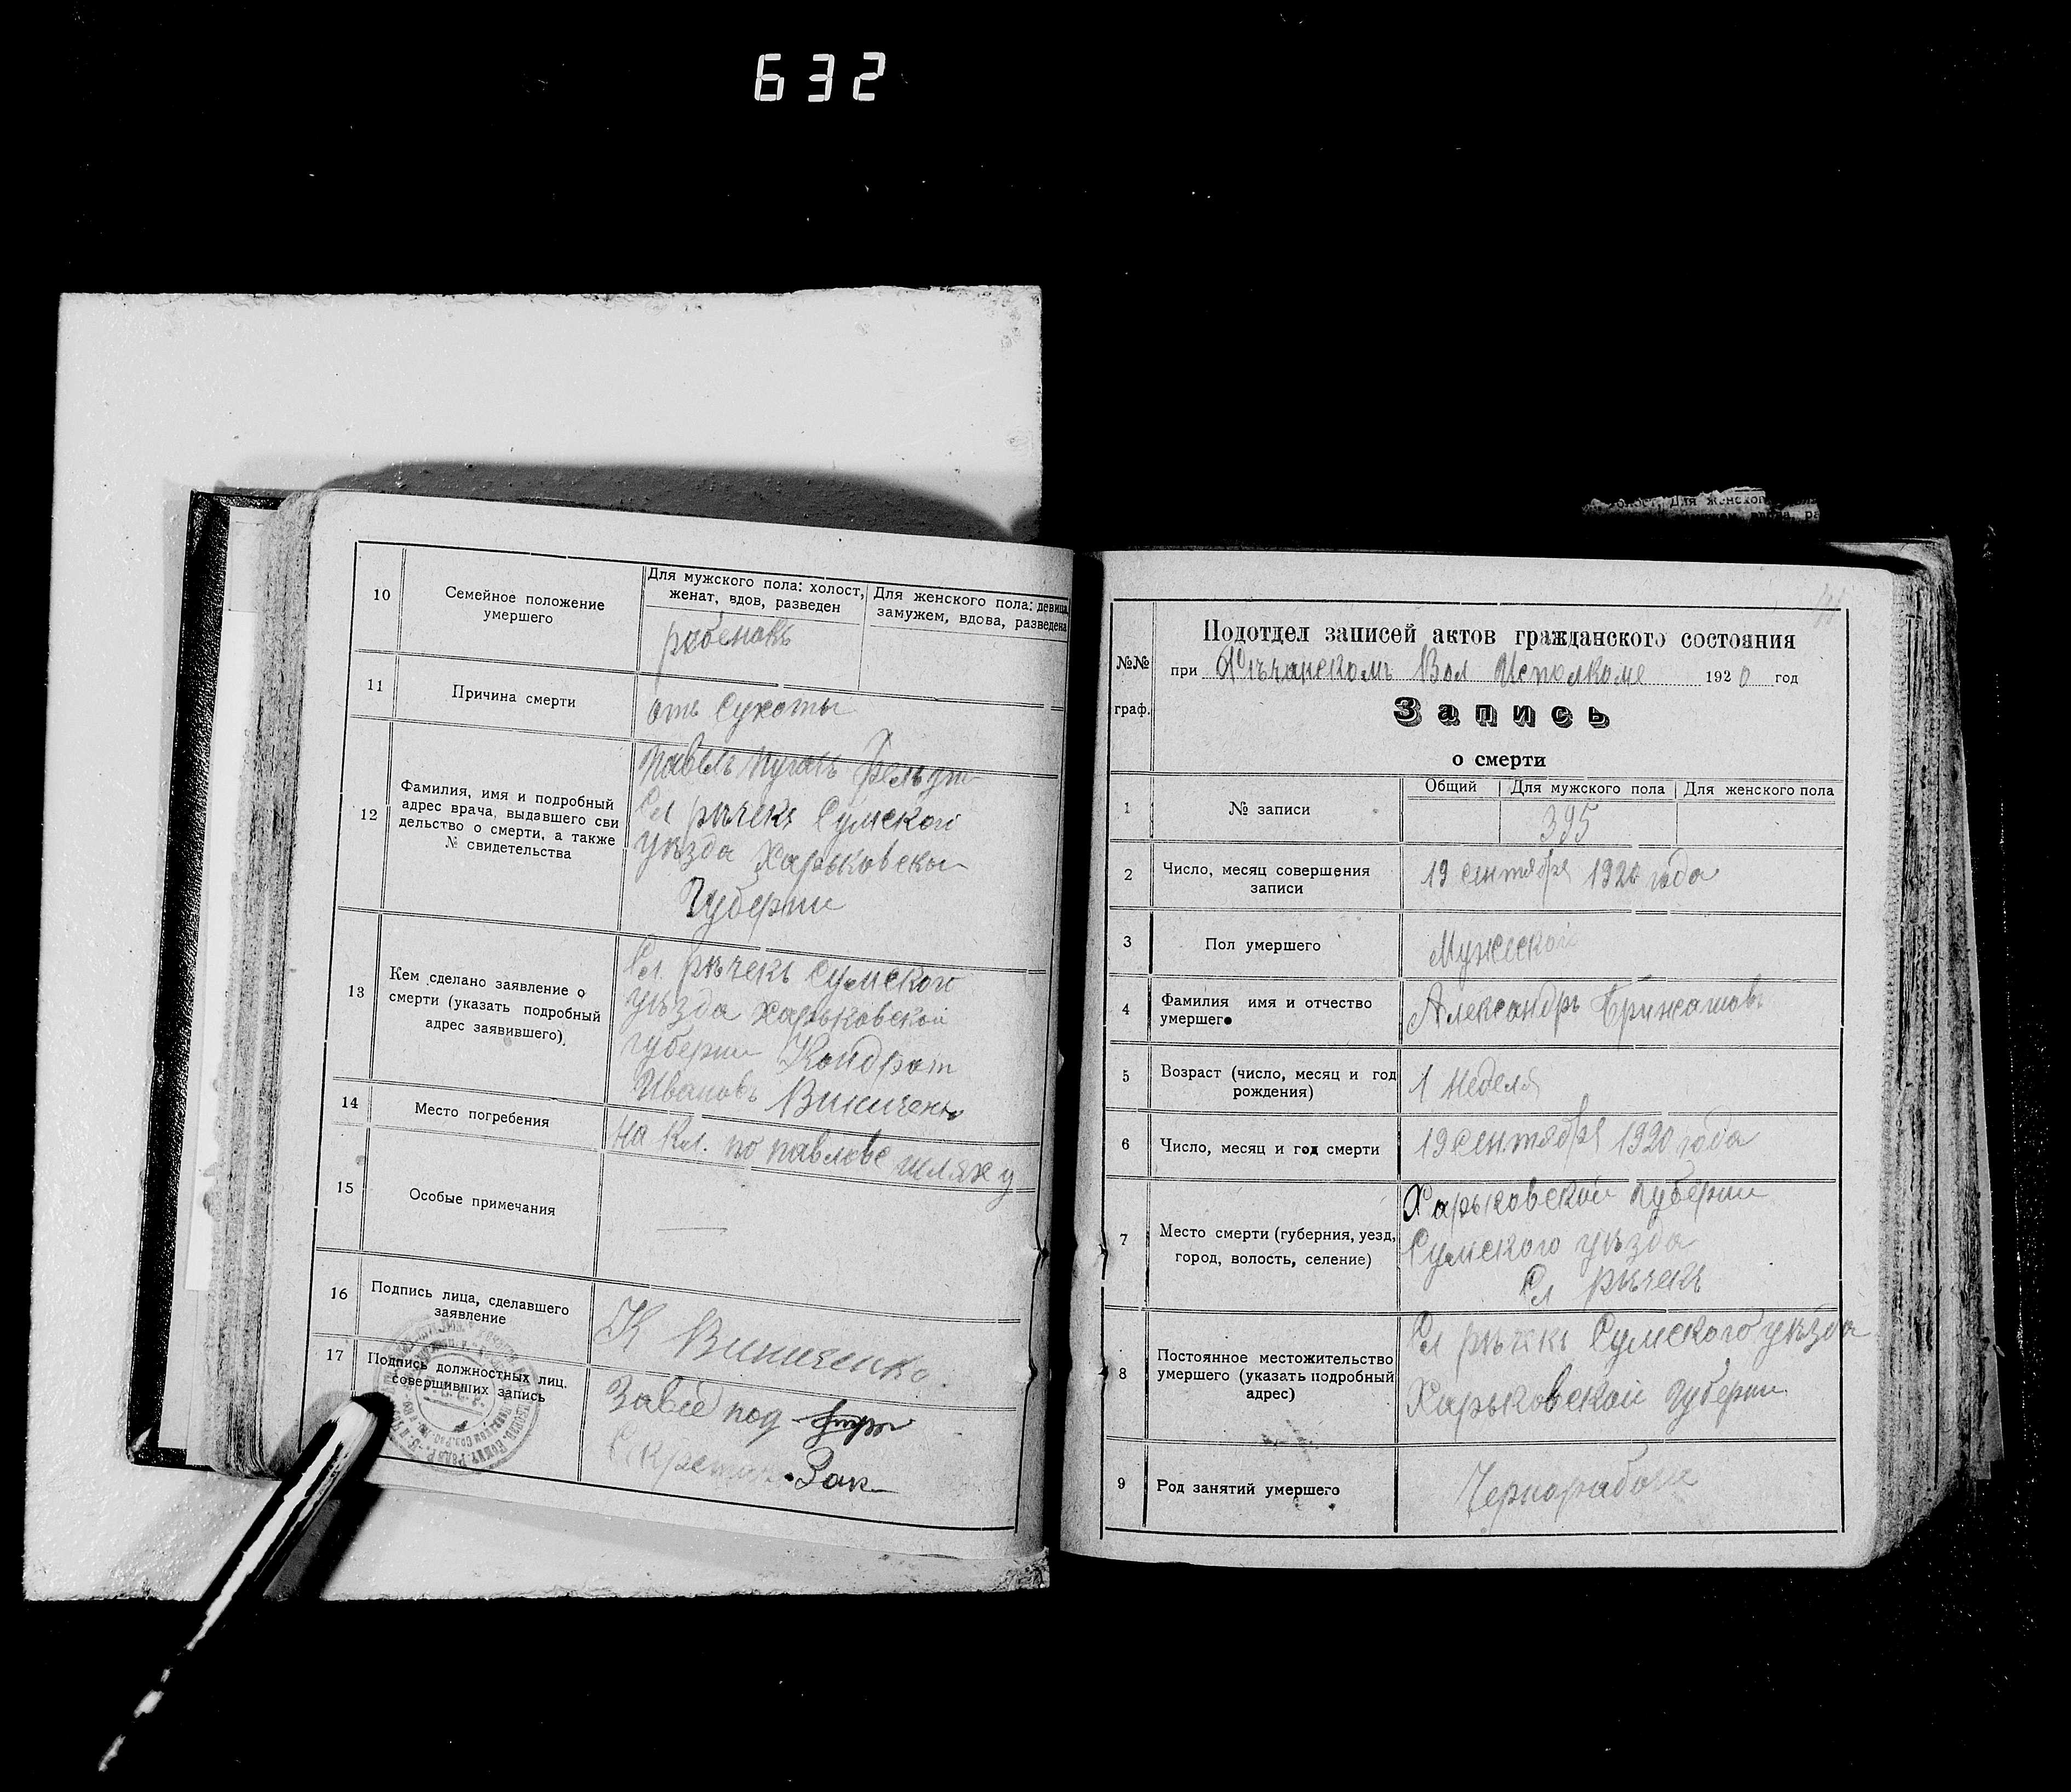 632
10
Семейное положение
умершего
Для мужского пола: холост,
женат, вдов, разведен
Для женского пола: девица,
замужем, вдова, разведена
рабенокъ
11
Причина смерти
отъ Сухоты
12
Фамилия, имя и подробный
адрес врача, выдавшего сви
дельство о смерти, а также
№ свидетельства
Сл рѣчекъ Сумской
уѣзда Харьковской
Губерни
13
Кем сделано заявление о
смерти (указать подробный
адрес заявившего).
Сл. рѣчекъ Сумского
уѣзда Харьковской
губерни Кондрат
Ивановъ Виниченко
14
Место погребения
на Кл. по павлове шляху
15
Особые примечания
16
Подпись лица, сделавшего
заявление
К Виниченко.
17
Подпись должностных лиц.
совершивших запись
Завед под
Секретарь
№№
граф.
Подотдел записей актов гражданского состояния
при Рѣчанскомъ Вол Исполкоме 1920 год
Запись
о смерти
1
№ записи
Общий
Для мужского пола
Для женского пола
395
2
Число, месяц совершения
записи
19 сентября 1920 года
3
Пол умершего
Мужеской
4
Фамилия имя и отчество
умершего
Александръ
5
Возраст (число, месяц и год
рождения)
1 неделя
6
Число, месяц и год смерти
19 сентября 1920 года
7
Место смерти (губерния, уезд,
город, волость, селение)
Харьковской губерни
Сумского уѣзда
Сл рѣчекъ
8
Постоянное местожительство
умершего (указать подробный
адрес)
Сл рѣчекъ Сумского уѣзда
Харьковской Губерни
9
Род занятий умершего